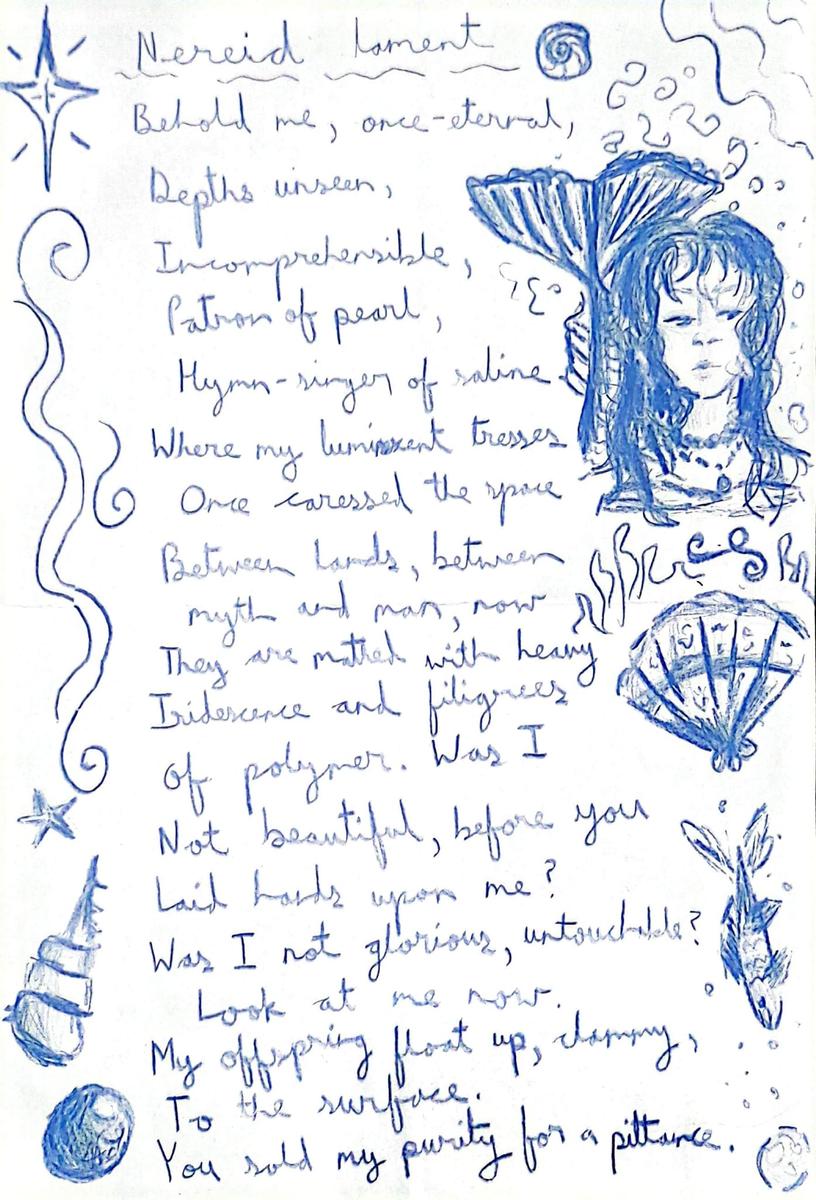 Nereid lament
Behold me, once-eternal,
Depths unseen,
Incomprehensible,
Patron of pearl,
Hymn-singer of saline
Where my luminescent tresses
Once caressed the space
Between lands, between
myth and man, now
They are mathed with heavy
Iridescence and filigrees
of polymer. Was I
Not beautiful, before you
Laid hands upon me?
Was I not glorious, untouchable?
Look at me now.
My offspring float up, clammy,
To the surface.
You sold my purity for a pittance.